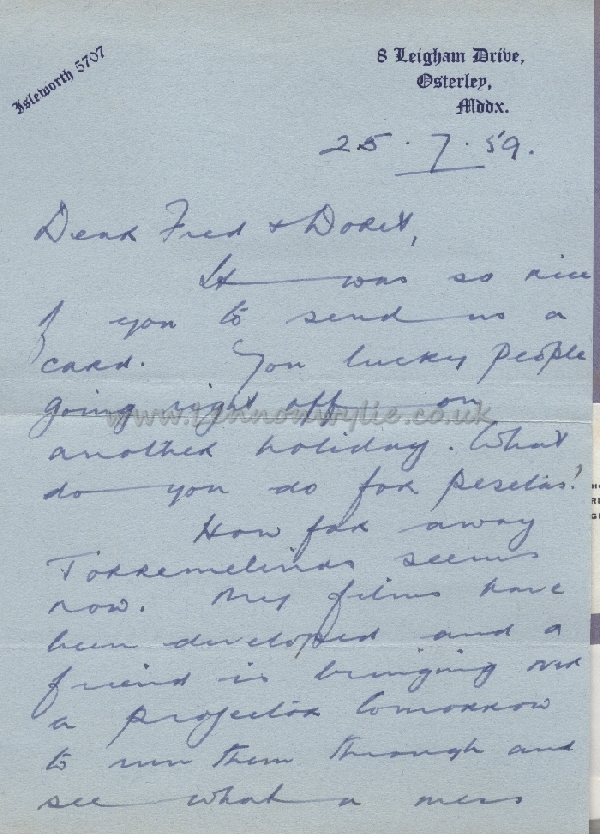 Isleworth 5707
8 Leigham Drive,
Osterley,
Mddx.
25.7.59.
Dear Fred & Doret,
It was so nice
of you to send us a
card. You lucky people
going right off on
www.lennonwylie.co.uk
another holiday. What
do you do for pesetas?
How far away
Torremelinos seems
now. My films have
been developed and a
friend is bringing over
a projector tomorrow
to run them through and
see what a mess